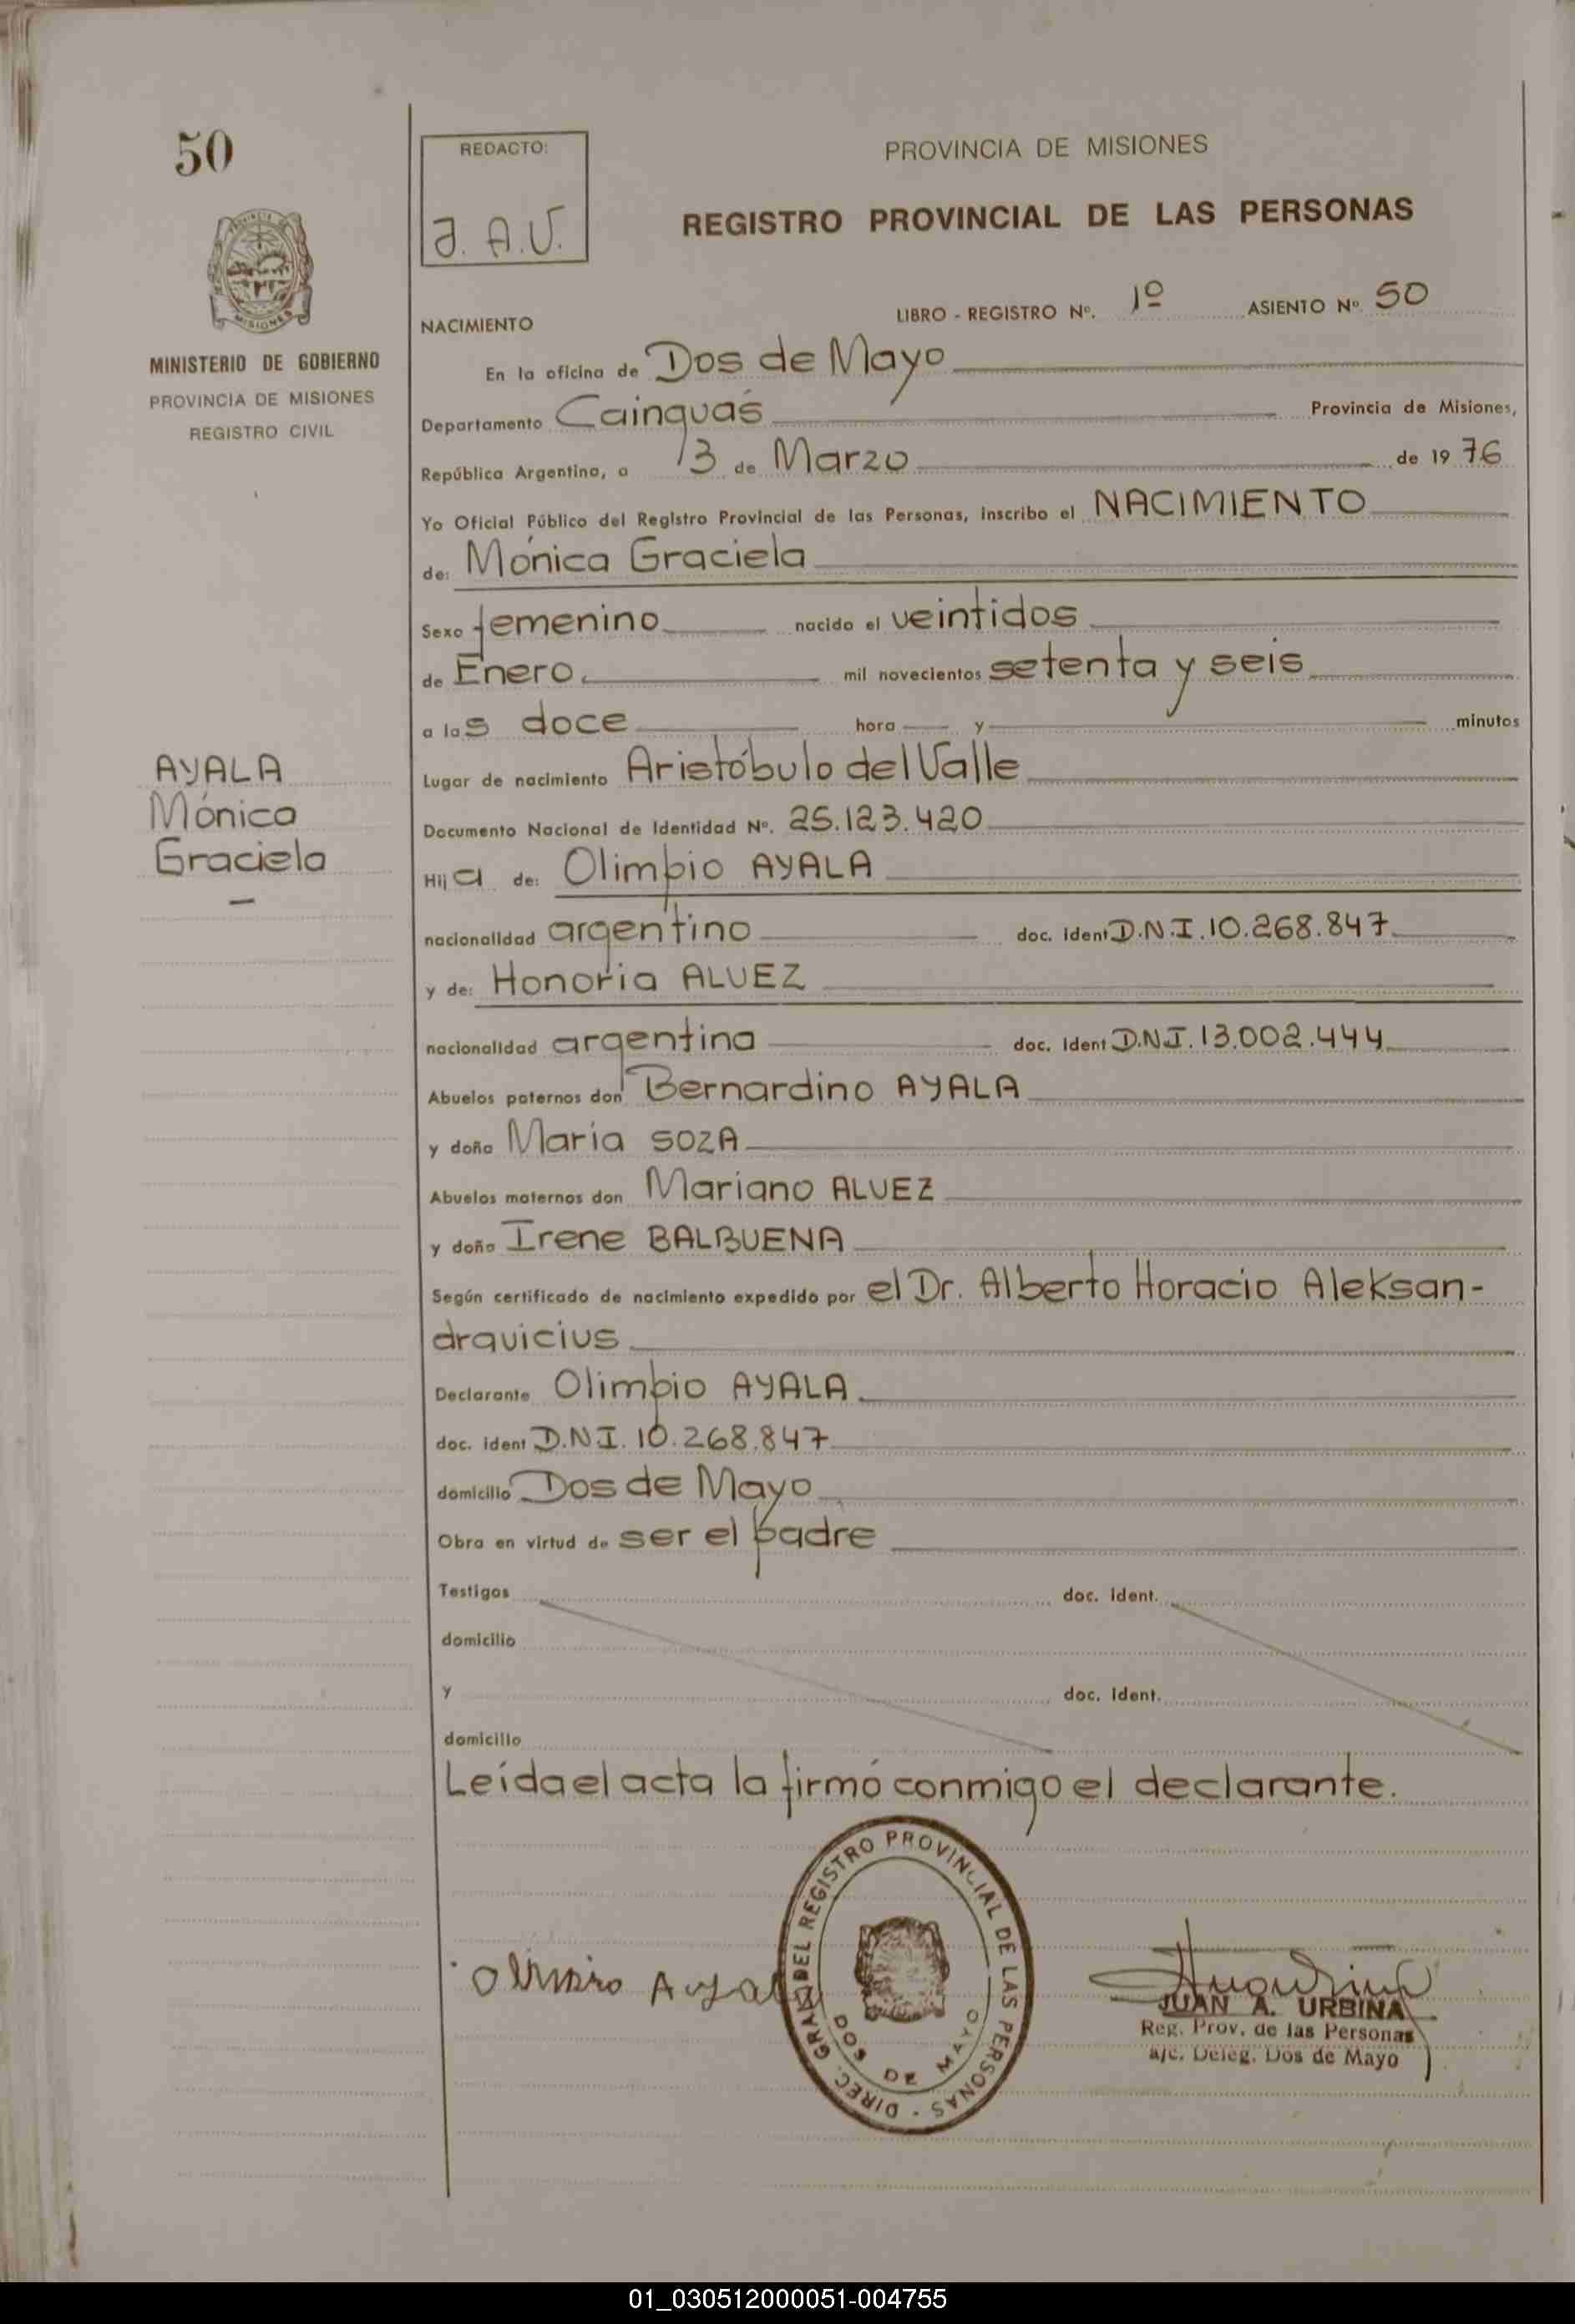 50
REDACTO:
J. A. U.
PROVINCIA DE MISIONES
REGISTRO PROVINCIAL DE LAS PERSONAS
MINISTERIO DE GOBIERNO
PROVINCIA DE MISIONES
REGISTRO CIVIL
NACIMIENTO LIBRO - REGISTRO Nº. 1º ASIENTO Nº. 50
En la oficina de Dos de Mayo
Departamento Cainguás Provincia de Misiones,
República Argentina, a 3 de Marzo de 1976
Yo Oficial Público del Registro Provincial de las Personas, inscribo el NACIMIENTO
de: Mónica Graciela
Sexo femenino nacido el veintidos
de Enero mil novecientos setenta y seis
a las doce hora y minutos
AYALA
Mónica
Graciela
Lugar de nacimiento Aristóbulo del Valle
Documento Nacional de Identidad Nº. 25.123.420
Hija de: Olimpio AYALA
nacionalidad argentino doc. ident D.N.I. 10.268.847
y de: Honoria ALUEZ
nacionalidad argentina doc. ident D.N.I. 13.002.444
Abuelos paternos don Bernardino AYALA
y doña María SOZA
Abuelos maternos don Mariano ALUEZ
y doña Irene BALBUENA
Según certificado de nacimiento expedido por el Dr. Alberto Horacio Aleksan-
dravicius
Declarante Olimpio AYALA
doc. ident D.N.I. 10.268.847
domicilio Dos de Mayo
Obra en virtud de ser el padre
Testigos doc. ident.
domicilio
y doc. ident.
domicilio
Leída el acta la firmó conmigo el declarante.
DIREC. GRAL. DEL REGISTRO PROVINCIAL DE LAS PERSONAS
DOS DE MAYO
JUAN A. URBINA
Reg. Prov. de las Personas
a/c. Deleg. Dos de Mayo
01_030512000051-004755